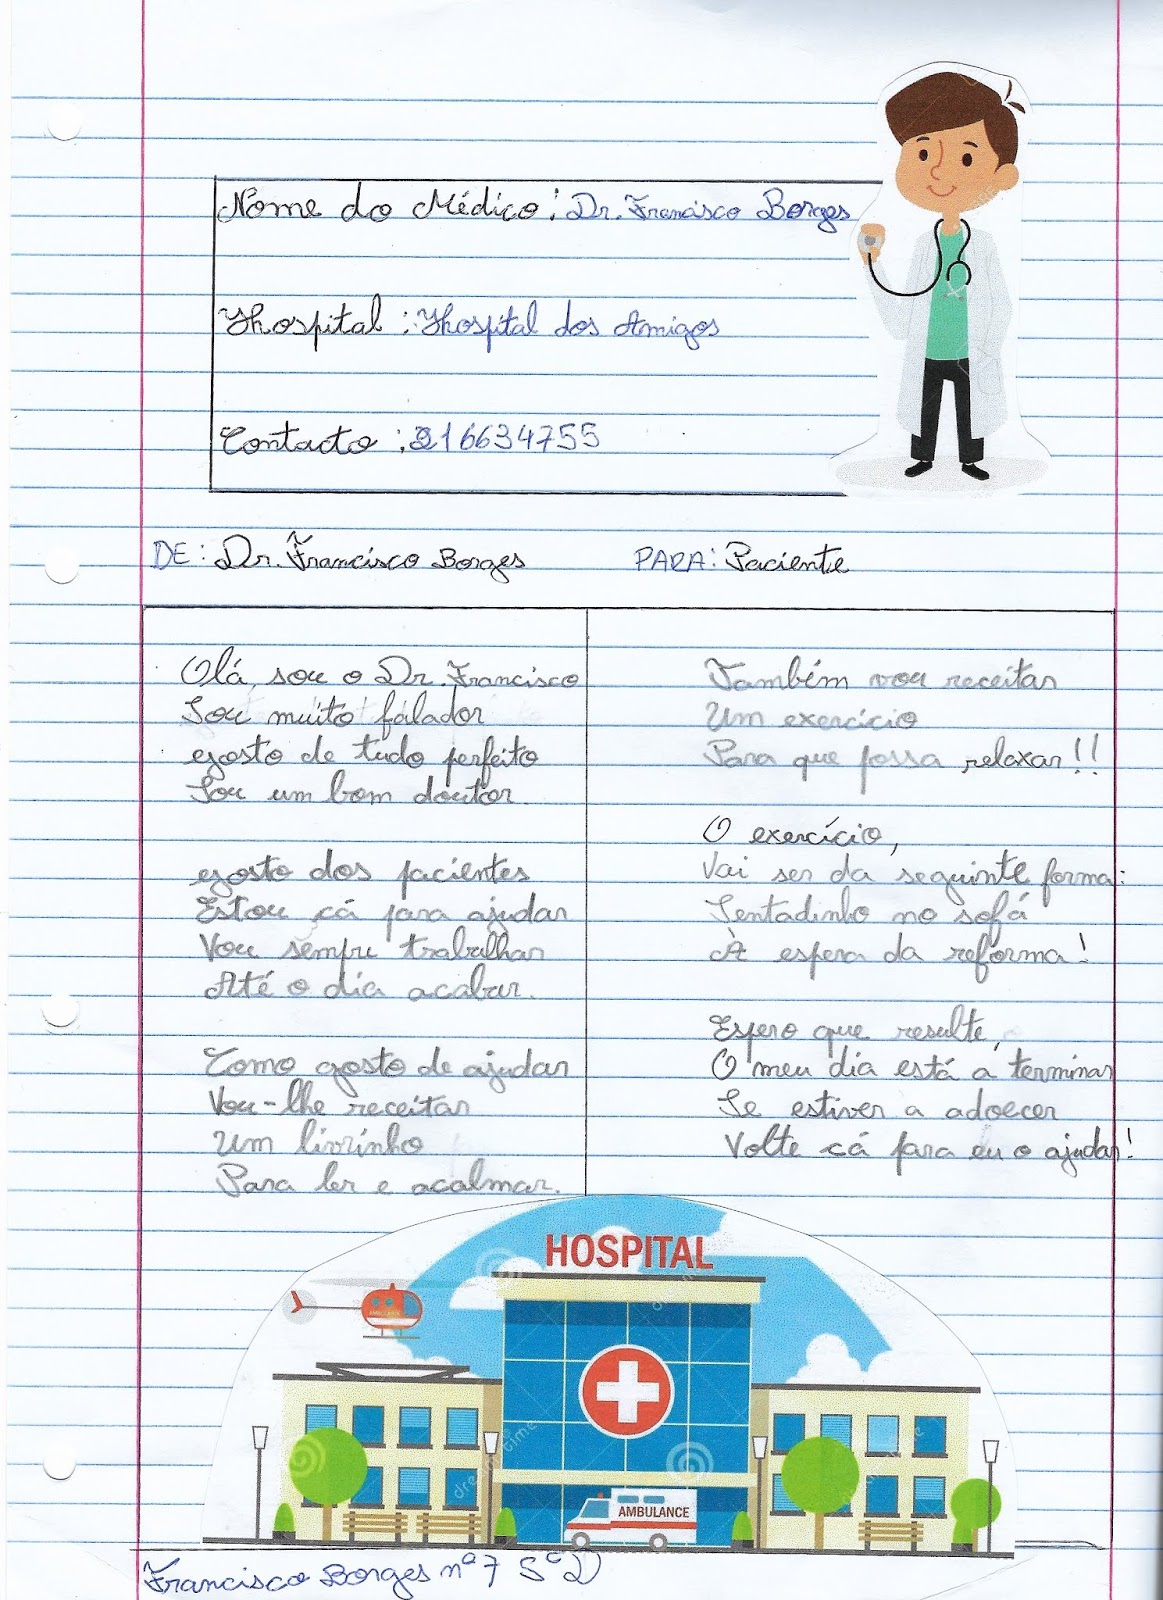 Nome do Médico: Dr. Francisco Borges
Hospital: Hospital dos Amigos
Contacto: 916634755
DE: Dr. Francisco Borges PARA: Paciente
Olá, sou o Dr. Francisco
Sou muito falador
gosto de tudo perfeito
Sou um bom doutor.
gosto dos pacientes
Estou cá para ajudar
Vou sempre trabalhar
Até o dia acabar.
Como gosto de ajudar
Vou-lhe receitar
Um livrinho
Para ler e acalmar.
Também vou receitar
Um exercício
Para que possa relaxar!!
O exercício,
Vai ser da seguinte forma:
Sentadinho no sofá
À espera da reforma!
Espero que resulte,
O meu dia está a terminar
Se estiver a adoecer
Volte cá para eu o ajudar!
HOSPITAL
AMBULANCE
Francisco Borges nº7 5ºD